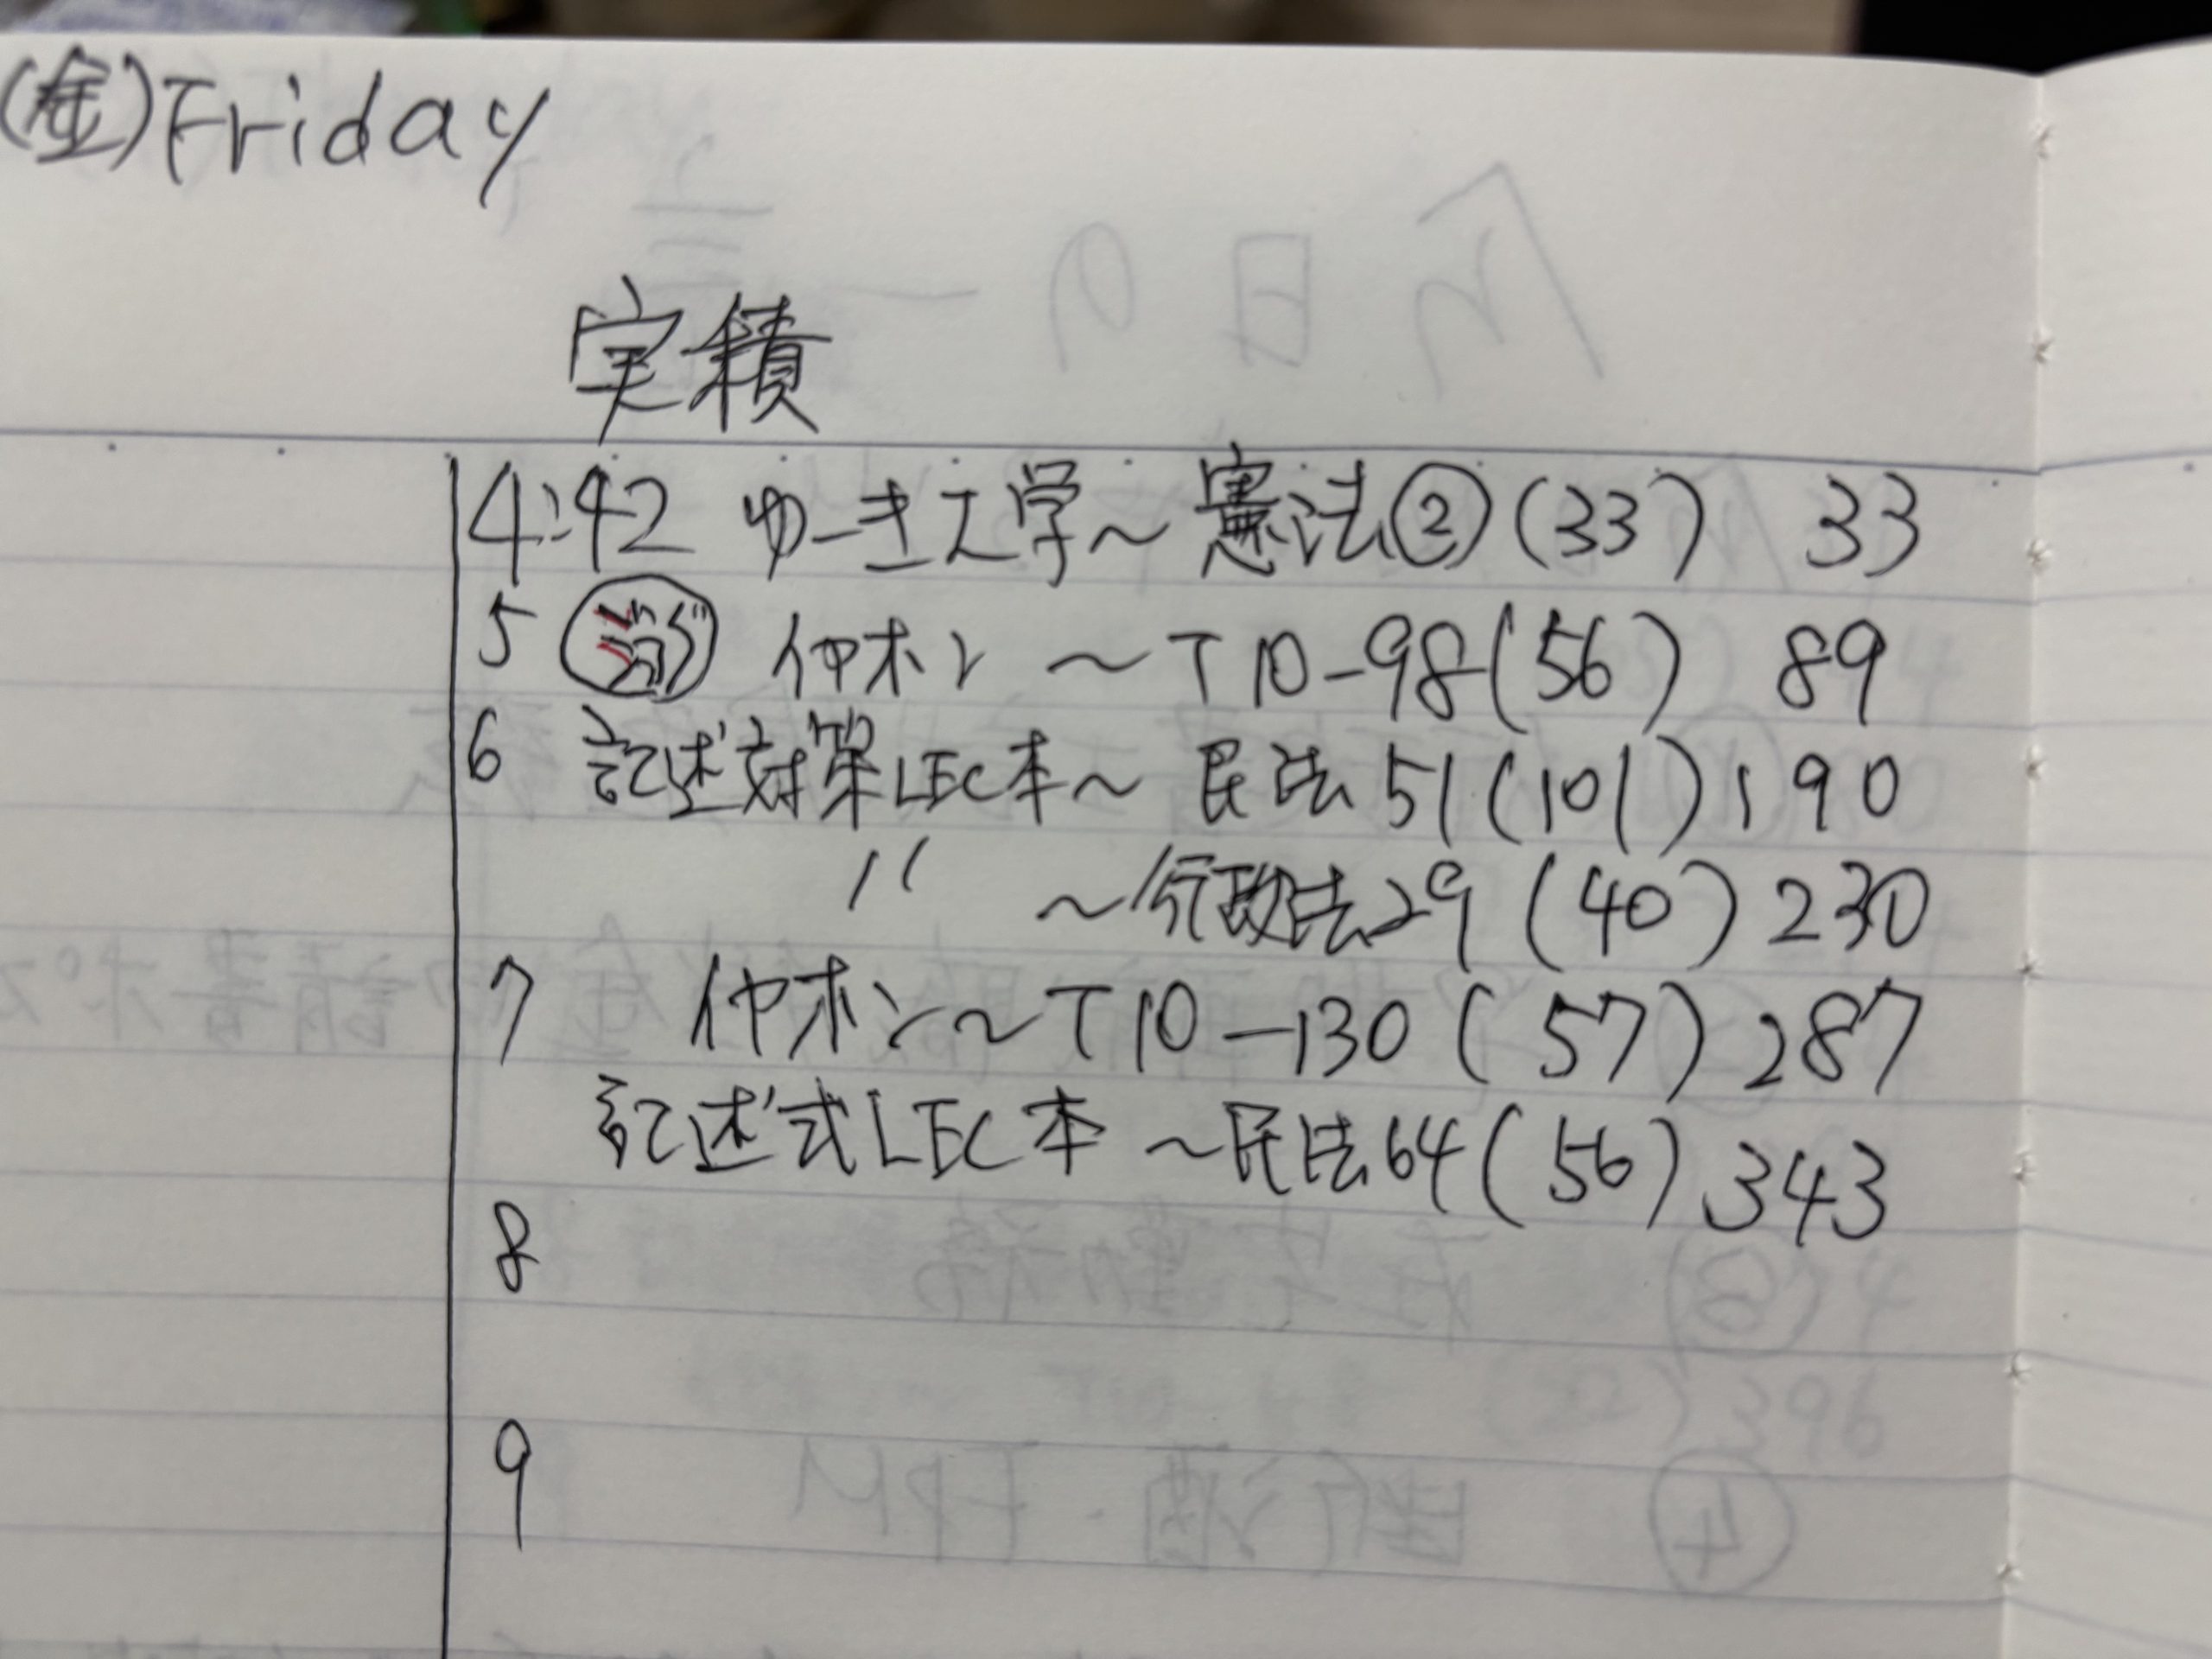 (金)Friday
実積
4:42 ゆーき大学〜憲法②(33) 33
5 イヤホン 〜T10-98(56) 89
6 記述対策LEC本〜民法51(101)190
〃 〜行政法29(40)230
7 イヤホン〜T10-130(57)287
記述式LEC本〜民法64(56)343
8
9